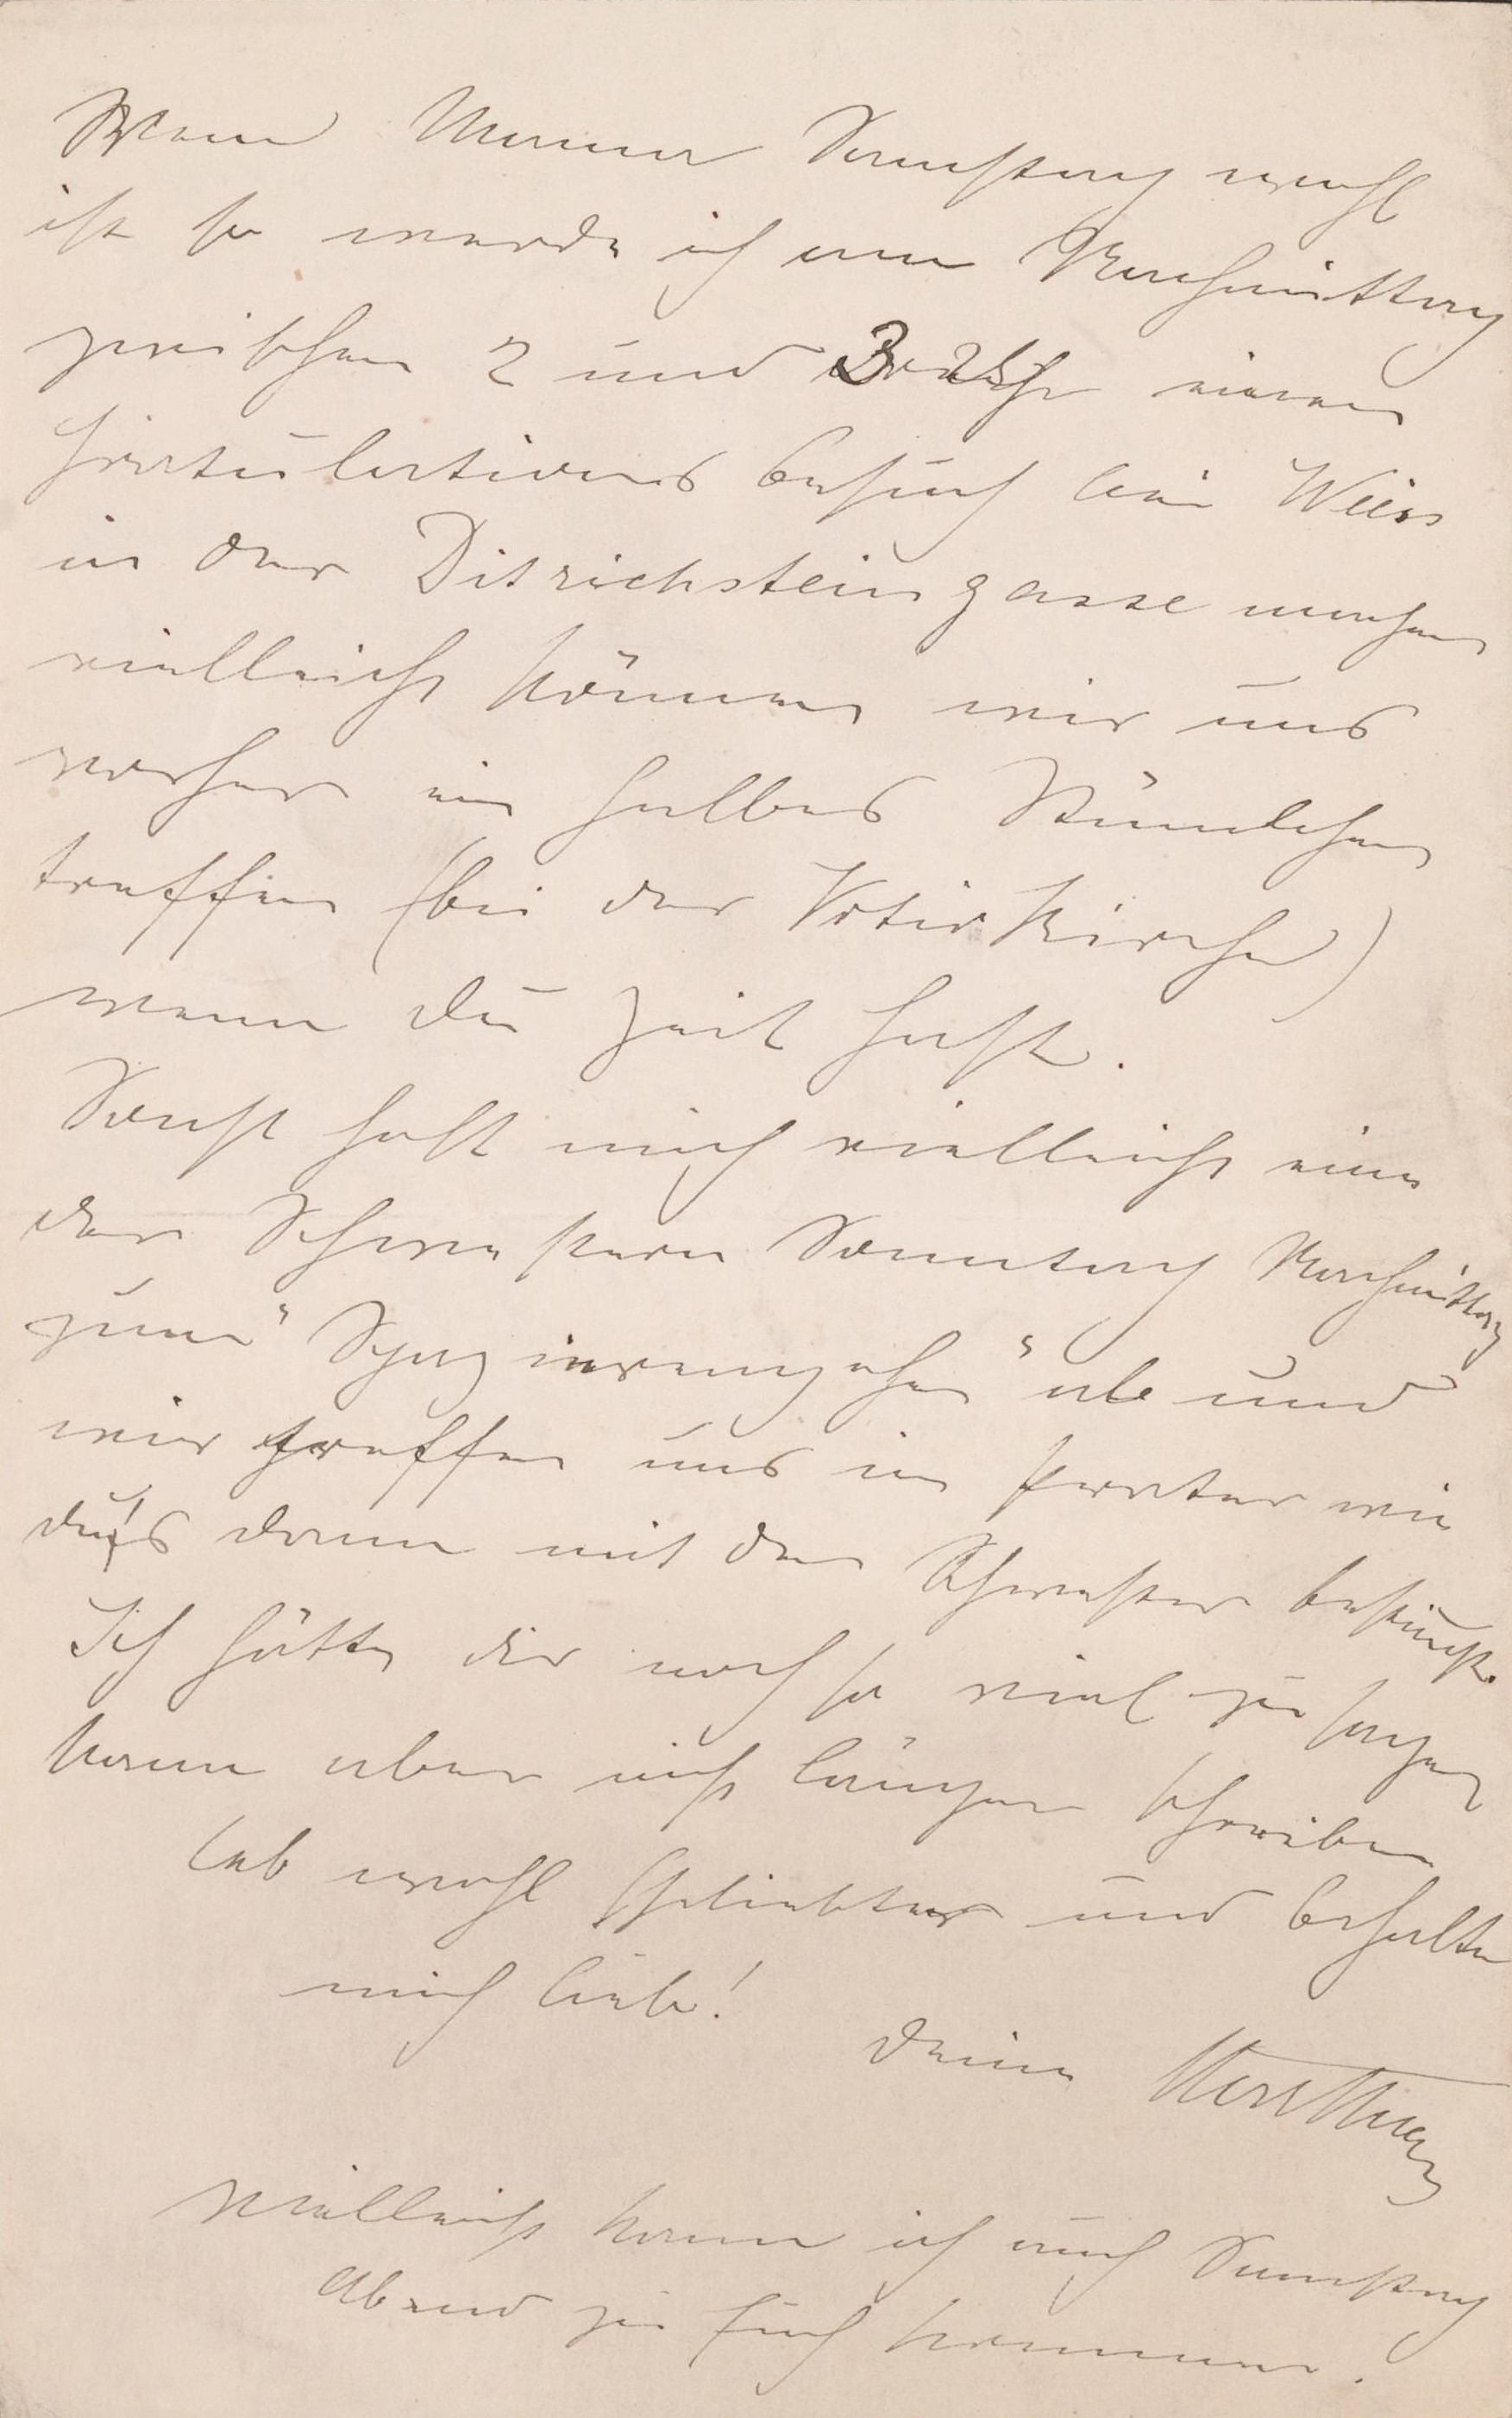 Wenn Mama Samstag wohl
ist so werde ich am Nachmittag
zwischen 2 und 3 Uhr einen
Gratulations besuch bei Weiss
in der Ditrichsteingasse machen
vielleicht können wir uns
vorher ein halbes Stündchen
treffen (bei der Votivkirche)
wenn du Zeit hast.
Sonst holt mich vielleicht eine
der Schwestern Sonntag Nachmittag
zum "Spazierengehen" ab und
wir treffen uns im Prater wie
du's dann mit der Schwester besprichst.
Ich hätte dir noch so viel zu sagen
kann aber nicht länger schreiben
leb wohl Geliebter und behalte
mich lieb!
deine
vielleicht kann ich auch Samstag
Abend zu Euch kommen.